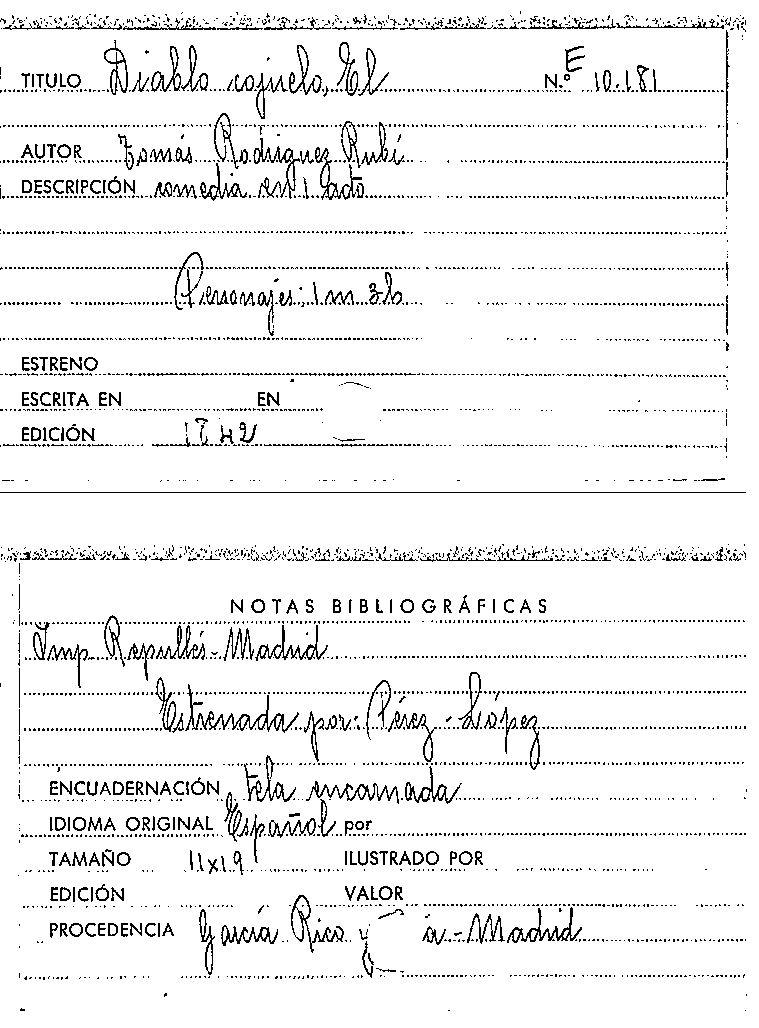 TITULO Diablo cojuelo, El N.º E 10.181
AUTOR Tomás Rodriguez Rubí
DESCRIPCIÓN comedia en 1 acto
Personajes: 1 m 3 h
ESTRENO
ESCRITA EN EN
EDICIÓN 1842
NOTAS BIBLIOGRÁFICAS
Imp. Repullés - Madrid
Estrenada por: Pérez - López
ENCUADERNACIÓN tela encarnada
IDIOMA ORIGINAL Español por
TAMAÑO 11x19 ILUSTRADO POR
EDICIÓN VALOR
PROCEDENCIA García Rico y a - Madrid